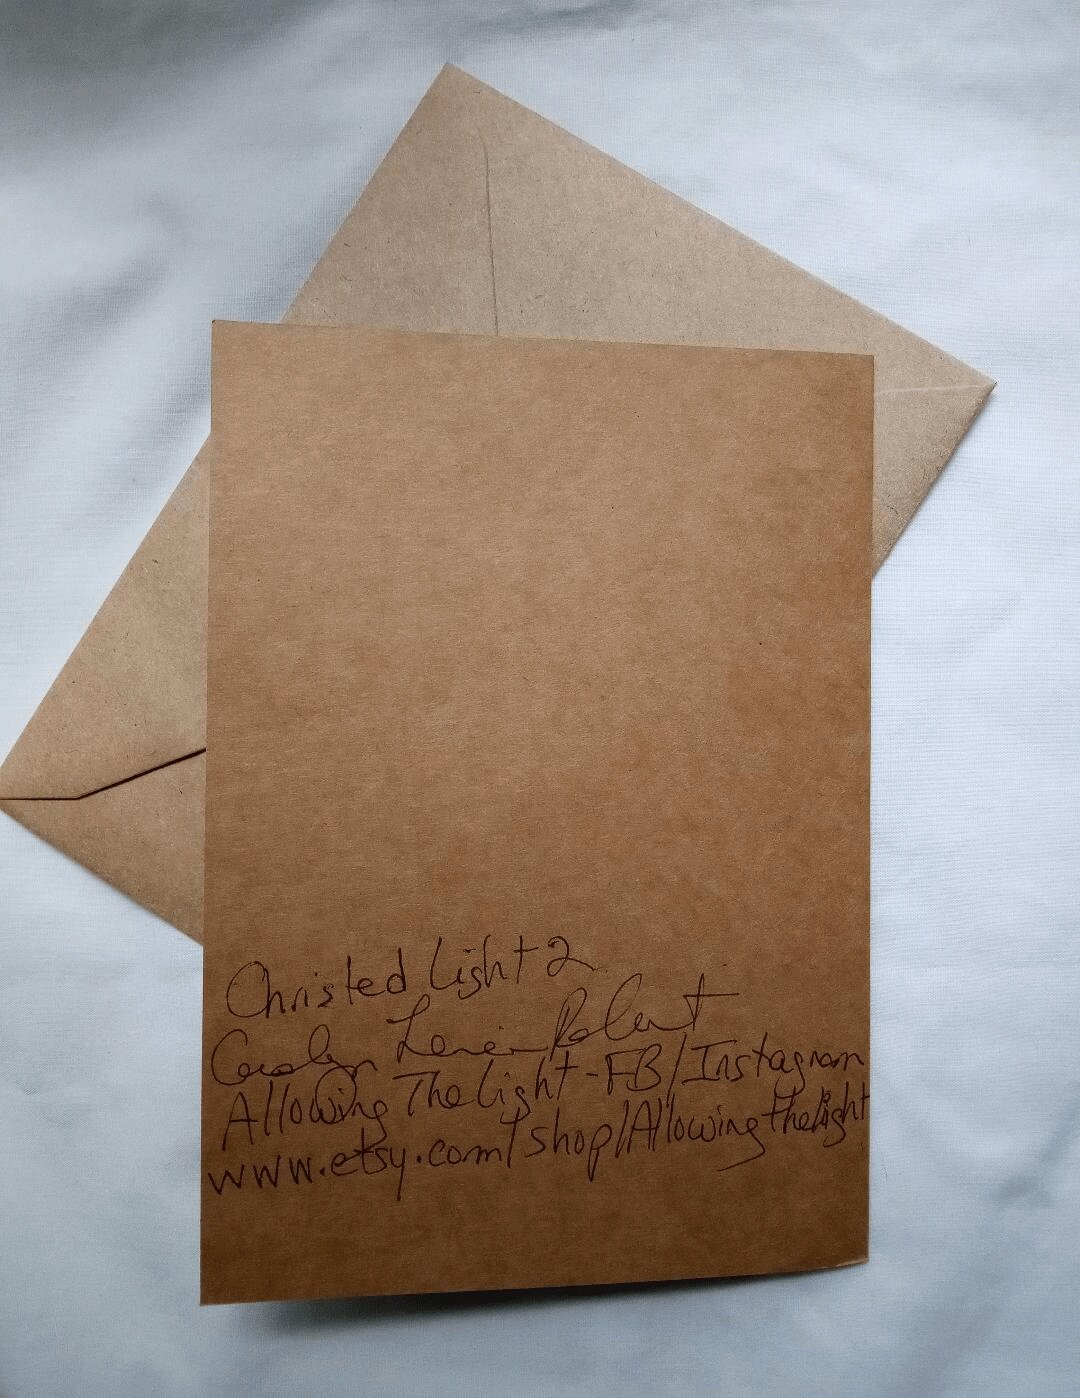 Christed Light 2
Carolyn
Allowing The Light - FB/Instagram
www.etsy.com/shop/Allowingthelight